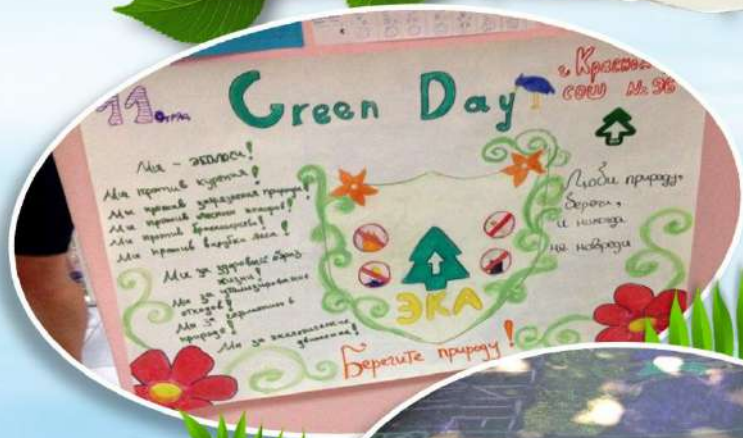 11 отряд
Green Day
г. Красно
СОШ № 96
Мы - экологи!
Мы против курения!
Мы против загрязнения природы!
Мы против лесных пожаров!
Мы против браконьерства!
Мы против вырубки леса!
Мы за здоровый образ
жизни!
Мы за утилизирование
отходов!
Мы за гармонию в
природе!
Мы за экологические
движения!
ЭКА
Люби природу,
береги,
и никогда
не навреди
Берегите природу!